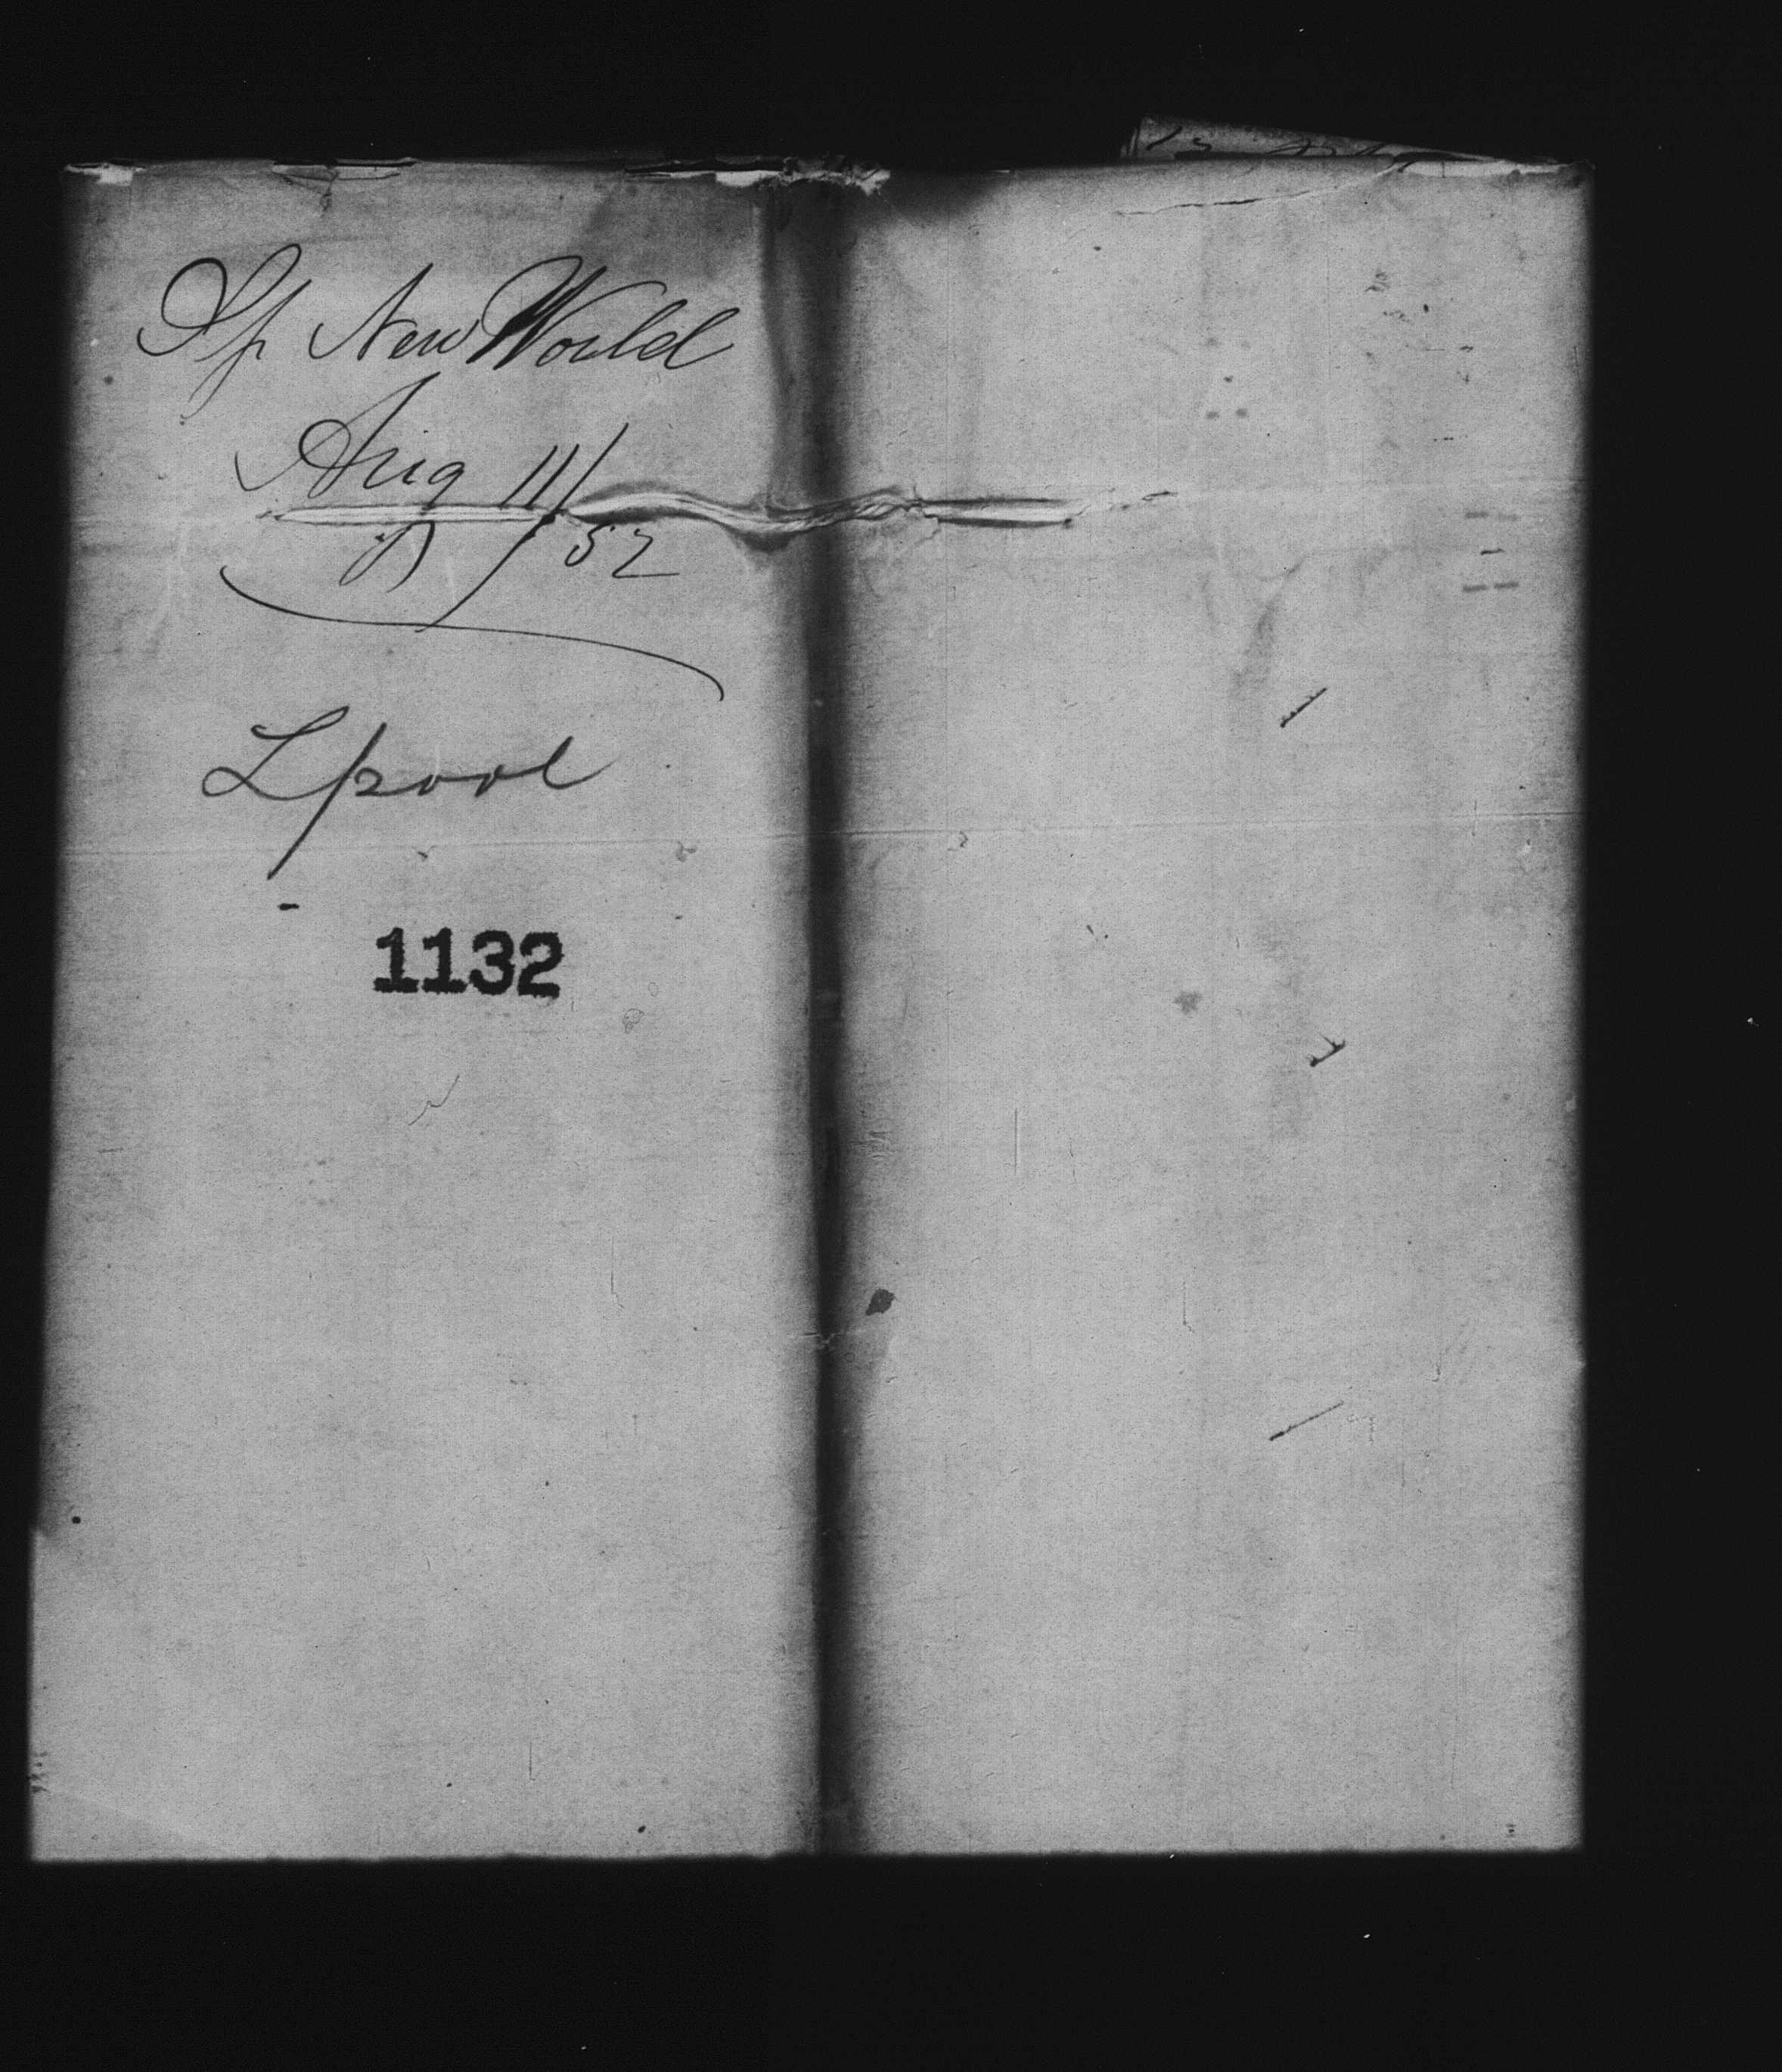 Sp New World
Aug 11/52
Lpool
1132